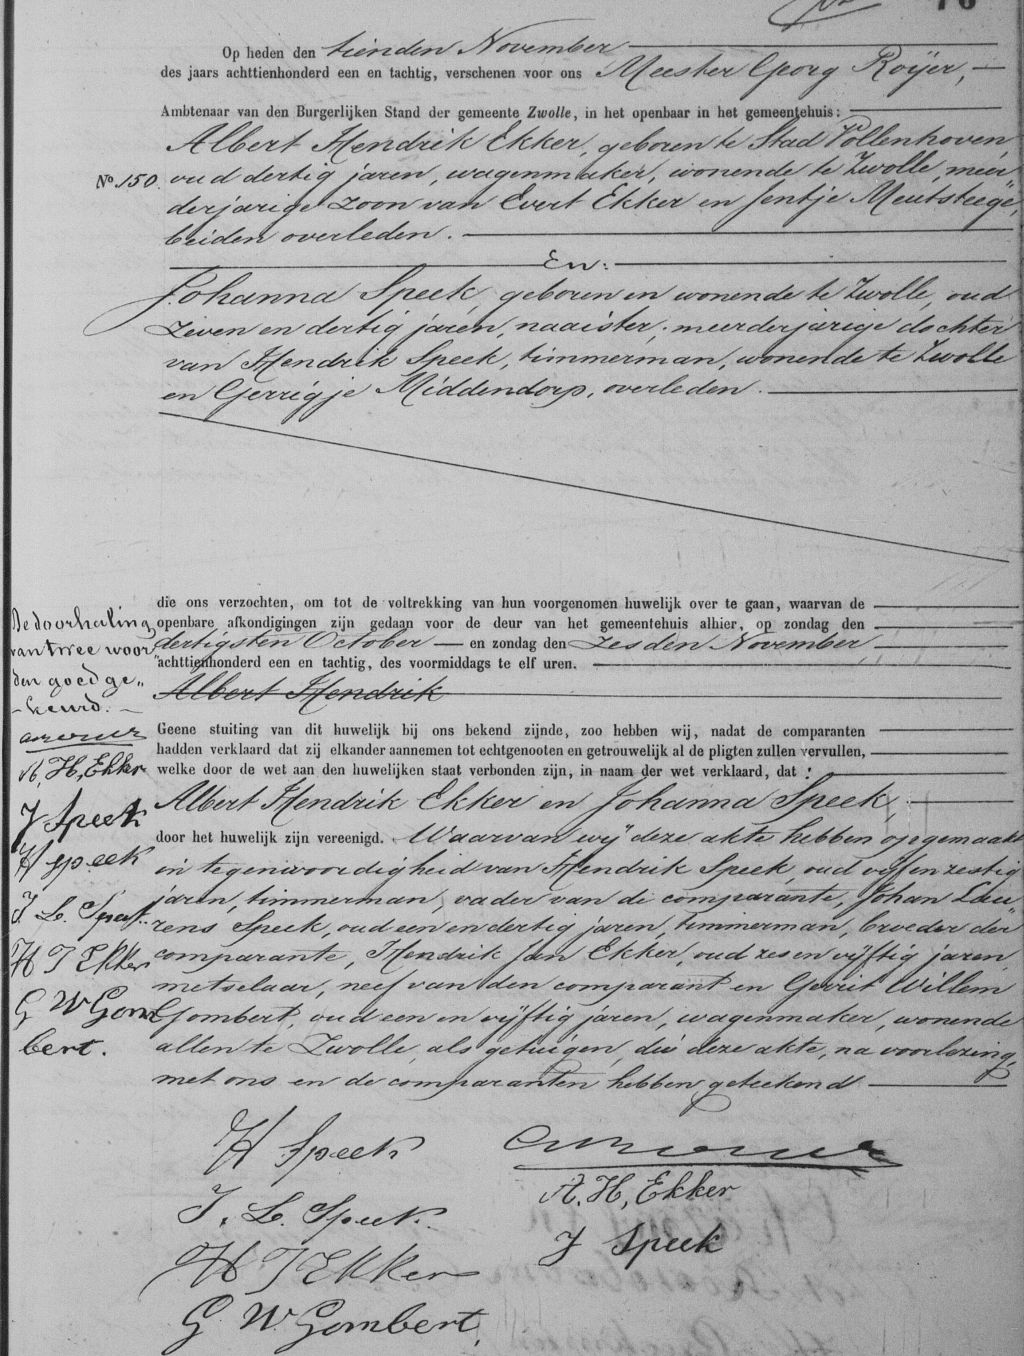 76
Op heden den tienden November
des jaars achttienhonderd een en tachtig, verschenen voor ons Meester Georg Roijer,
Ambtenaar van den Burgerlijken Stand der gemeente Zwolle, in het openbaar in het gemeentehuis:
Albert Hendrik Ekker, geboren te Stad Vollenhoven,
No. 150. oud dertig jaren, wagenmaker, wonende te Zwolle, meer
derjarige zoon van Evert Ekker en Jentje Meutsteege,
beiden overleden.
En:
Johanna Speek, geboren en wonende te Zwolle, oud
zeven en dertig jaren, naaister, meerderjarige dochter
van Hendrik Speek, timmerman, wonende te Zwolle
en Gerrigje Middendorp, overleden.
die ons verzochten, om tot de voltrekking van hun voorgenomen huwelijk over te gaan, waarvan de
openbare afkondigingen zijn gedaan voor de deur van het gemeentehuis alhier, op zondag den
dertigsten October en zondag den zesden November
achttienhonderd een en tachtig, des voormiddags te elf uren.
Albert Hendrik
De doorhaling
van twee woor„
den goed ge„
keurd.
A, H, Ekker
J Speek
H Speek
J. L. Speek
H J Ekker
G W Gom
bert.
Geene stuiting van dit huwelijk bij ons bekend zijnde, zoo hebben wij, nadat de comparanten
hadden verklaard dat zij elkander aannemen tot echtgenooten en getrouwelijk al de pligten zullen vervullen,
welke door de wet aan den huwelijken staat verbonden zijn, in naam der wet verklaard, dat :
Albert Hendrik Ekker en Johanna Speek,
door het huwelijk zijn vereenigd. Waarvan wij deze akte hebben opgemaakt
in tegenwoordigheid van Hendrik Speek, oud vijf en zestig
jaren, timmerman, vader van de comparante, Johan Lau„
rens Speek, oud een en dertig jaren, timmerman, broeder der
comparante, Hendrik Jan Ekker, oud zes en vijftig jaren,
metselaar, neef van den comparant en Gerrit Willem
Gombert, oud een en vijftig jaren, wagenmaker, wonende
allen te Zwolle, als getuigen, die deze akte, na voorlezing,
met ons en de comparanten hebben geteekend
H Speek
J. L. Speek
H J Ekker
G W Gombert,
A. H, Ekker
J Speek